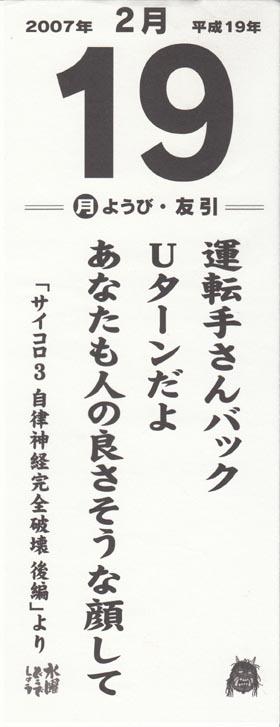 2007年 2月 平成19年
19
㊊ようび・友引
運転手さんバック
Uターンだよ
あなたも人の良さそうな顔して
「サイコロ3 自律神経完全破壊 後編」より
水曜
どうで
しょう